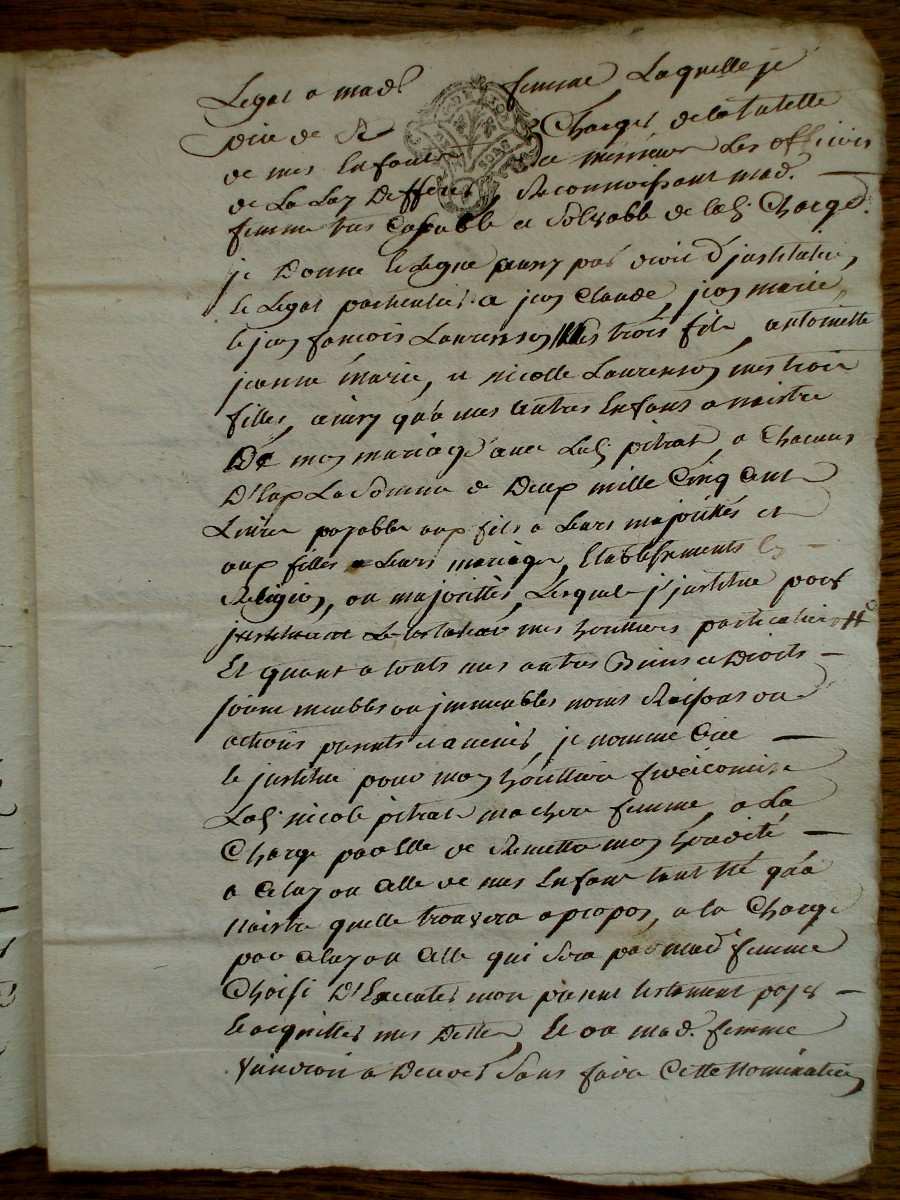 Legat a mad. femme Laquelle je
prie de se Charger de la tutelle
de mes Enfants messieurs Les officiers
de La Loy Defferer, Reconnoissant mad.
femme tres Capable et Solvable de lad. Charge.
je Donne et legue par droit d'jnstitution,
et Legat particulier a jean Claude, jean marie,
et jean francois Laurenson mes trois fils, antoinette
jeanne marie, et nicolle Laurenson mes trois
filles, ainsy qu'a mes autres Enfans a naistre
De mon mariage avec Lad. pitrat a Chacuns
D'Eux La Somme de Deux mille Cinq Cent
Livres payable aux fils a Leurs majorités et
aux filles a Leurs mariage, Etablissements En
Religion, ou majorittés, Lesquels j'jnstitue pour
mes heritiers particuliers
Et quant a touts mes autres Biens et Droits
meubles ou jmmeubles noms Raisons ou
actions presents et avenir, je nomme Cree
et jnstitue pour mon heritiere fideicomise
Lad. nicole pitrat ma chere femme, a La
Charge par Elle de Remettre mon heredité
a Celuy ou Celle de mes Enfans tant né qu'a
Naistre quelle trouvera a propos, a la Charge
par Celuy ou Celle qui Sera par mad. femme
Choisi D'Executer mon present testament payer
et acquitter mes Dettes, Et ou mad. femme
Viendroit a Deceder Sans faire Cette Nomination